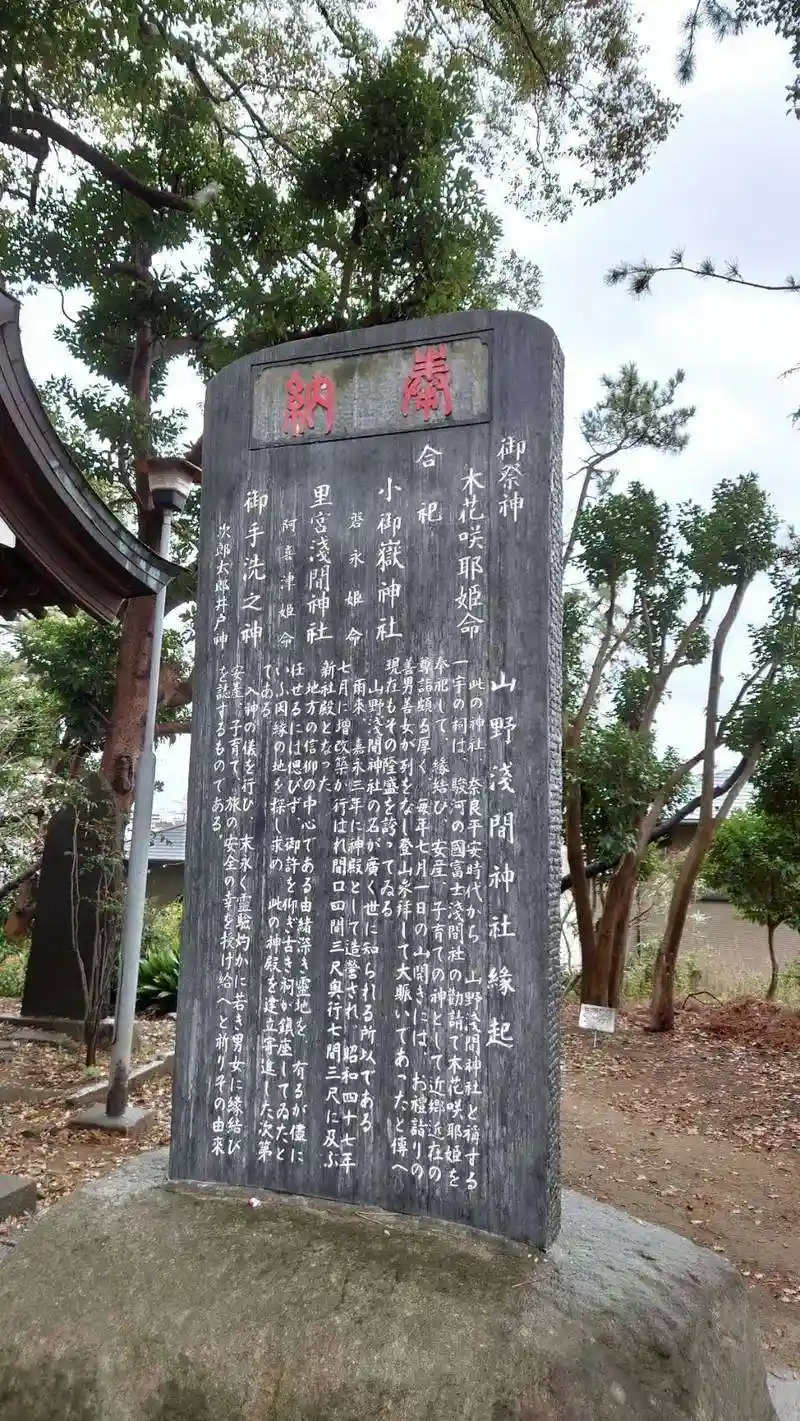 奉納
御祭神
木花咲耶姫命
合祀
小御嶽神社
磐永姫命
里宮浅間神社
阿喜津姫命
御手洗之神
次郎太郎井戸神
山野浅間神社縁起
此の神社 奈良平安時代から 山野浅間神社と稱する
一宇の祠は、駿河の國富士浅間社の勸請で木花咲耶姫を
奉祀して、縁結び、安産、子育ての神として近郷近在の
尊詣頗る厚く 毎年七月一日の山開きには、お禮詣りの
善男善女が列をなし登山参拜して大賑いであったと傳へ
現在もその隆盛を誇ってゐる
山野浅間神社の名が廣く世に知られる所以である
爾来、嘉永三年に神殿として造營され、昭和四十七年
七月に増改築が行はれ間口四間三尺奥行七間三尺に及ぶ
新社殿となった
地方の信仰の中心である由緒深き靈地を 有るが儘に
任せるには偲びず、御許を仰ぎ古き祠が鎮座してゐたと
いふ因縁の地を探し求め 此の神殿を建立寄進した次第
である
入神の儀を行ひ 末永く靈驗灼かに若き男女に縁結び
安産、子育て、旅の安全の幸を授け給へと祈りその由来
を誌するものである。